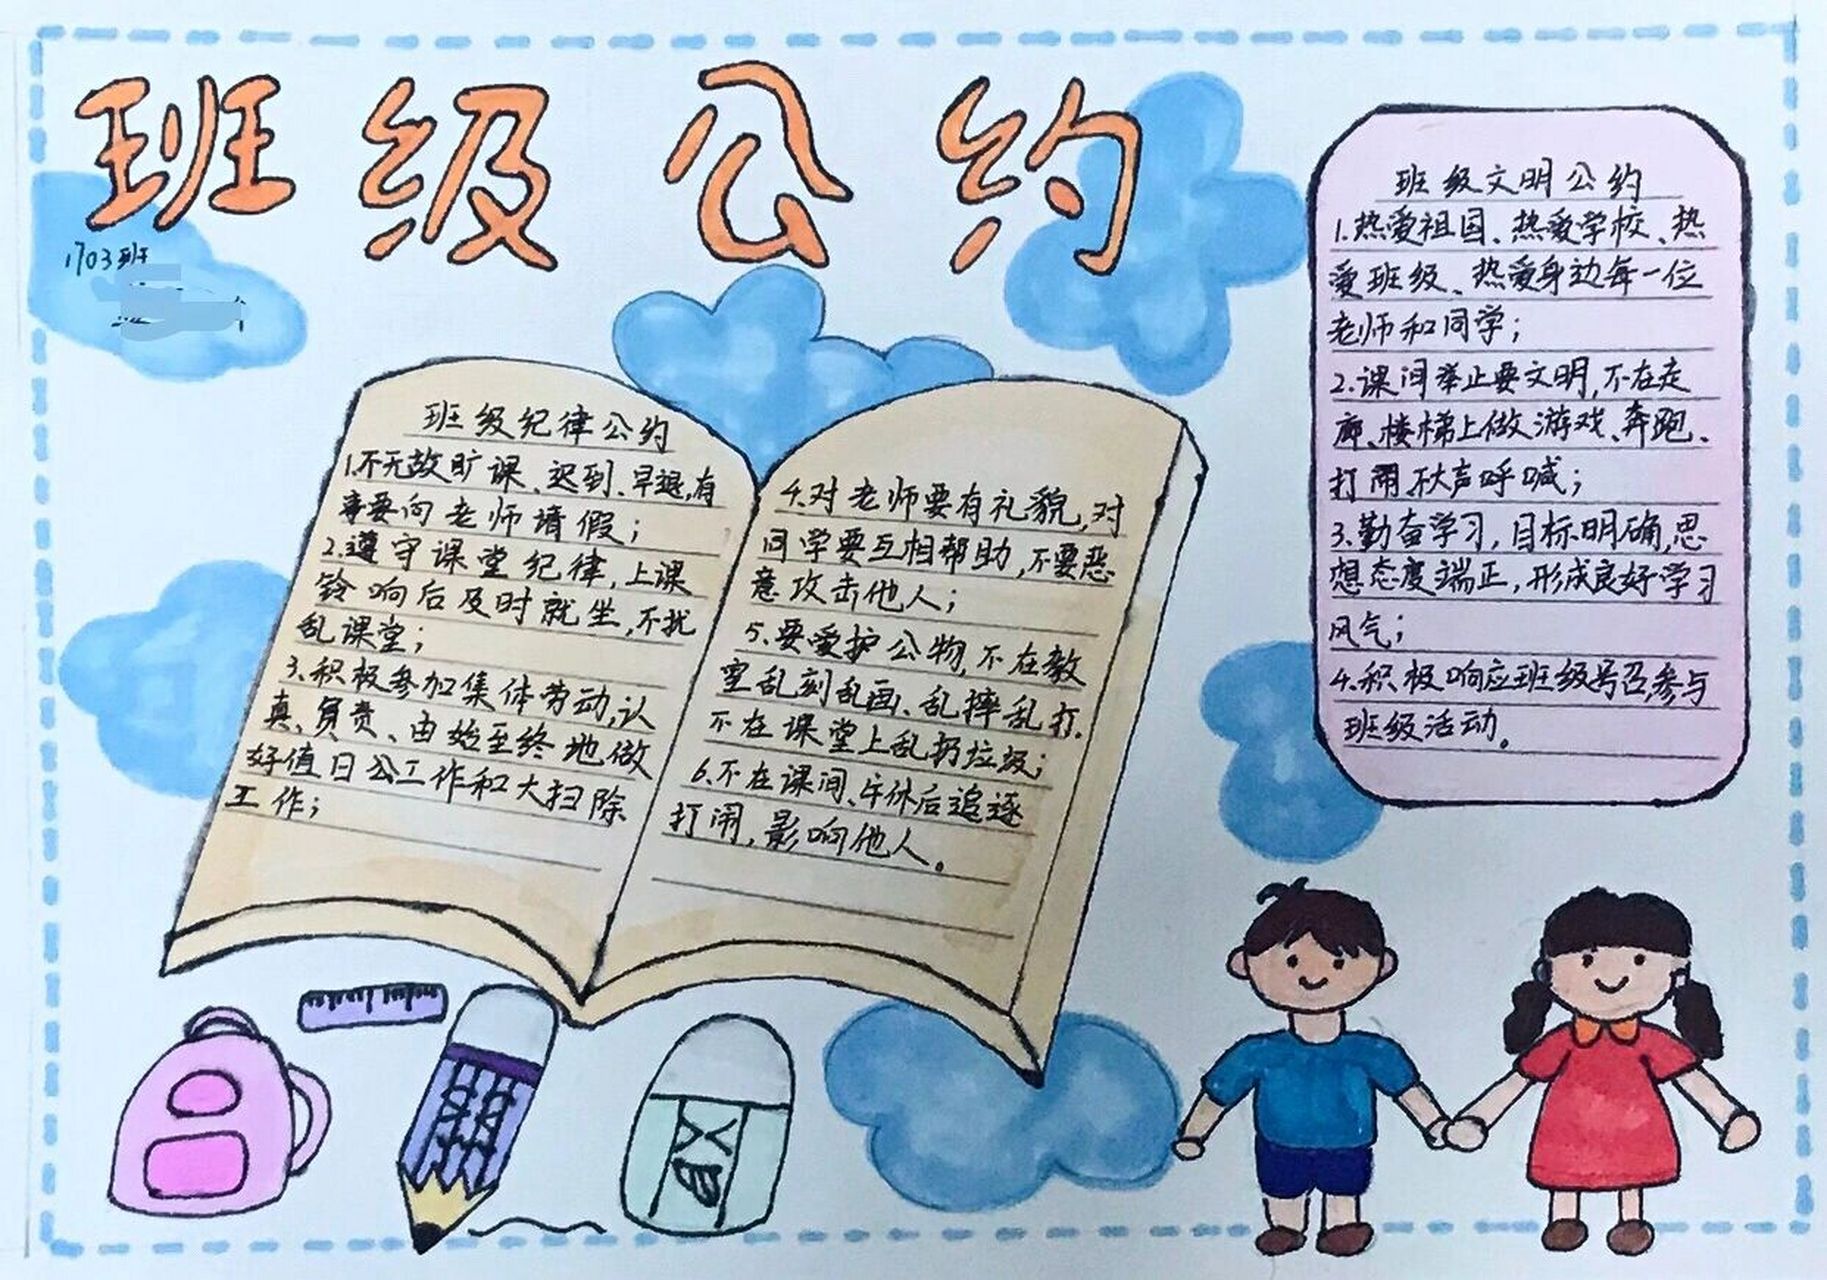 班级公约
1703班
班级纪律公约
1.不无故旷课、迟到、早退,有
事要向老师请假;
2.遵守课堂纪律,上课
铃响后及时就坐,不扰
乱课堂;
3.积极参加集体劳动,认
真、负责、由始至终地做
好值日公工作和大扫除
工作;
4.对老师要有礼貌,对
同学要互相帮助,不要恶
意攻击他人;
5.要爱护公物,不在教
室乱刻乱画、乱摔乱打.
不在课堂上乱扔垃圾;
6.不在课间、午休后追逐
打闹,影响他人。
班级文明公约
1.热爱祖国、热爱学校、热
爱班级、热爱身边每一位
老师和同学;
2.课间举止要文明,不在走
廊、楼梯上做游戏、奔跑、
打闹、大声呼喊;
3.勤奋学习,目标明确,思
想态度端正,形成良好学习
风气;
4.积极响应班级号召,参与
班级活动。